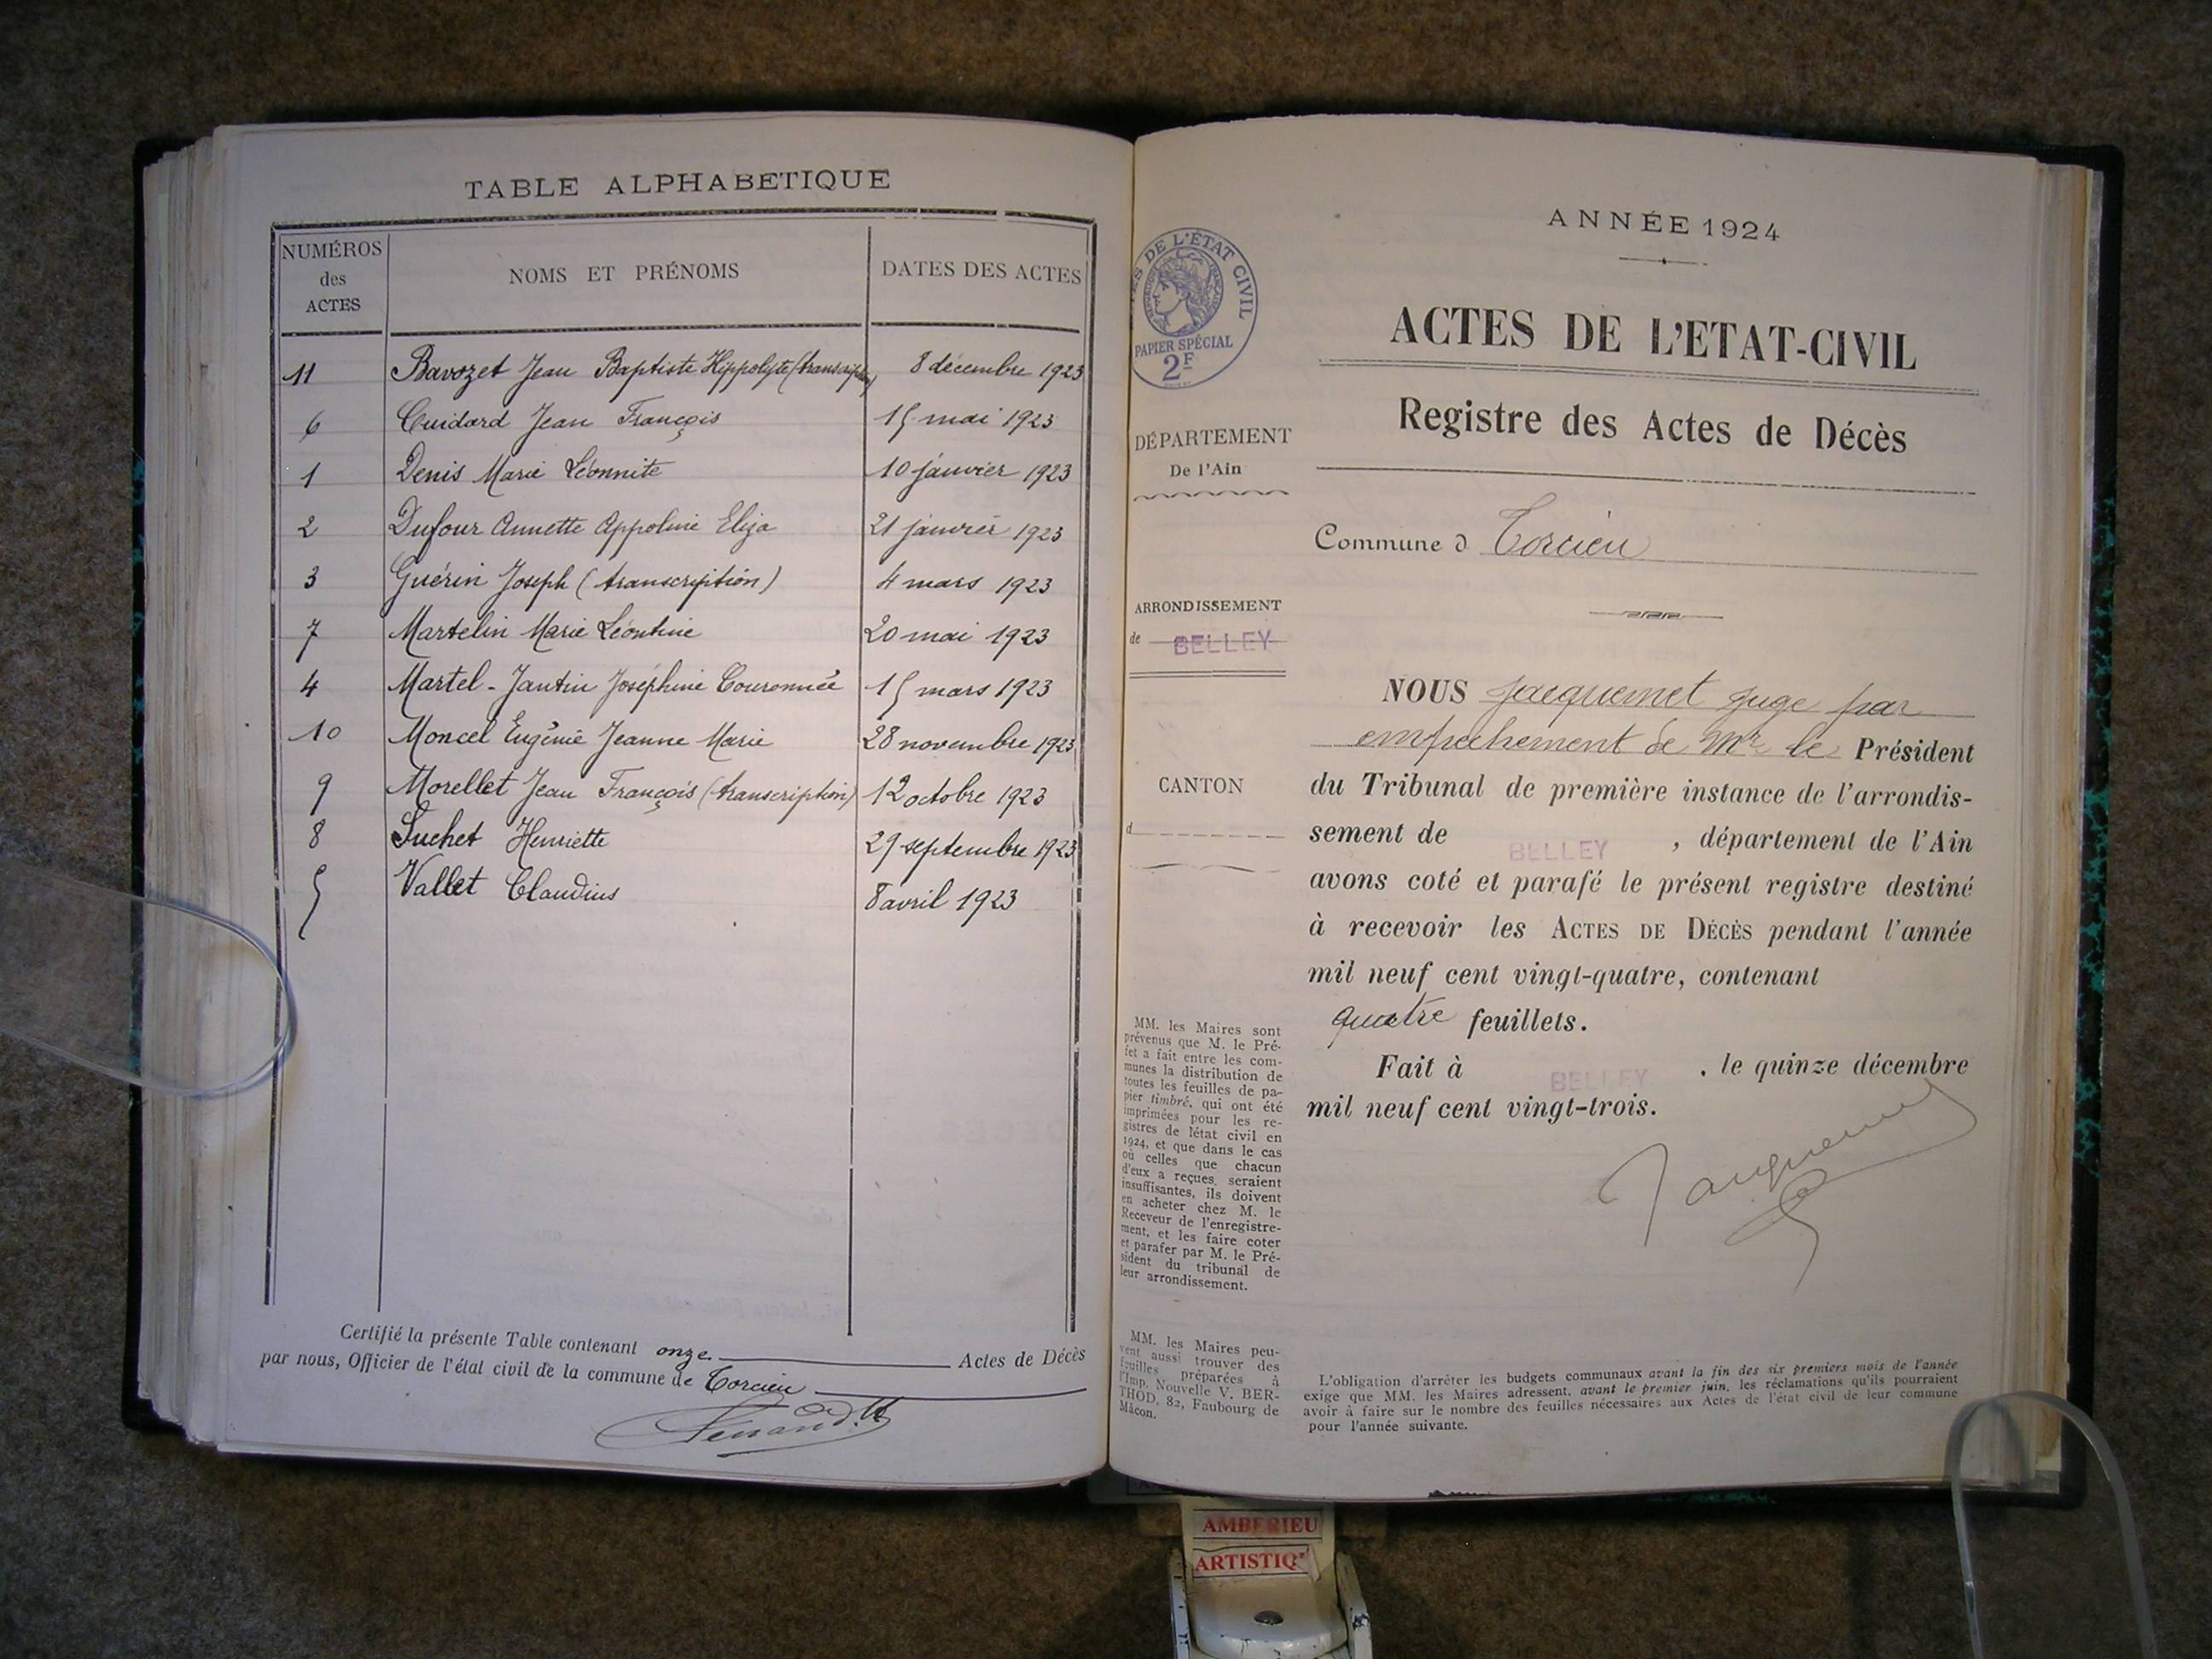 TABLE ALPHABETIQUE
NUMÉROS des ACTES
NOMS ET PRÉNOMS
DATES DES ACTES
11 Bavozet Jean Baptiste Hippolyte (transcription) 8 décembre 1923
6 Cuidard Jean François 15 mai 1923
1 Denis Marie Léonnite 10 janvier 1923
2 Dufour Annette Appoline Eliza 21 janvier 1923
3 Guérin Joseph (transcription) 4 mars 1923
7 Martelin Marie Léontine 20 mai 1923
4 Martel-Jantin Joséphine Couronnée 15 mars 1923
10 Moncel Eugénie Jeanne Marie 28 novembre 1923
9 Morellet Jean François (transcription) 12 octobre 1923
8 Suchet Henriette 29 septembre 1923
5 Vallet Claudius 8 avril 1923
Certifié la présente Table contenant onze Actes de Décès
par nous, Officier de l'état civil de la commune de Torcieu
ANNÉE 1924
ACTES DE L'ETAT-CIVIL
Registre des Actes de Décès
DE L'ÉTAT CIVIL
PAPIER SPÉCIAL
2F
DÉPARTEMENT
De l'Ain
Commune d Torcieu
ARRONDISSEMENT
de BELLEY
CANTON
d
NOUS Jacquemet juge par
empêchement de Mr le Président
du Tribunal de première instance de l'arrondis-
sement de BELLEY, département de l'Ain
avons coté et parafé le présent registre destiné
à recevoir les ACTES DE DÉCÈS pendant l'année
mil neuf cent vingt-quatre, contenant
quatre feuillets.
Fait à BELLEY, le quinze décembre
mil neuf cent vingt-trois.
Jacquemet
MM. les Maires sont
prévenus que M. le Pré-
fet a fait entre les com-
munes la distribution de
toutes les feuilles de pa-
pier timbré, qui ont été
imprimées pour les re-
gistres de létat civil en
1924, et que dans le cas
où celles que chacun
d'eux a reçues, seraient
insuffisantes, ils doivent
en acheter chez M. le
Receveur de l'enregistre-
ment, et les faire coter
et parafer par M. le Pré-
sident du tribunal de
leur arrondissement.
MM. les Maires peu-
vent aussi trouver des
feuilles préparées à
l'Imp. Nouvelle V. BER-
THOD, 82, Faubourg de
Mâcon.
L'obligation d'arrêter les budgets communaux avant la fin des six premiers mois de l'année
exige que MM. les Maires adressent, avant le premier juin, les réclamations qu'ils pourraient
avoir à faire sur le nombre des feuilles nécessaires aux Actes de l'état civil de leur commune
pour l'année suivante.
AMBERIEU
ARTISTIQ